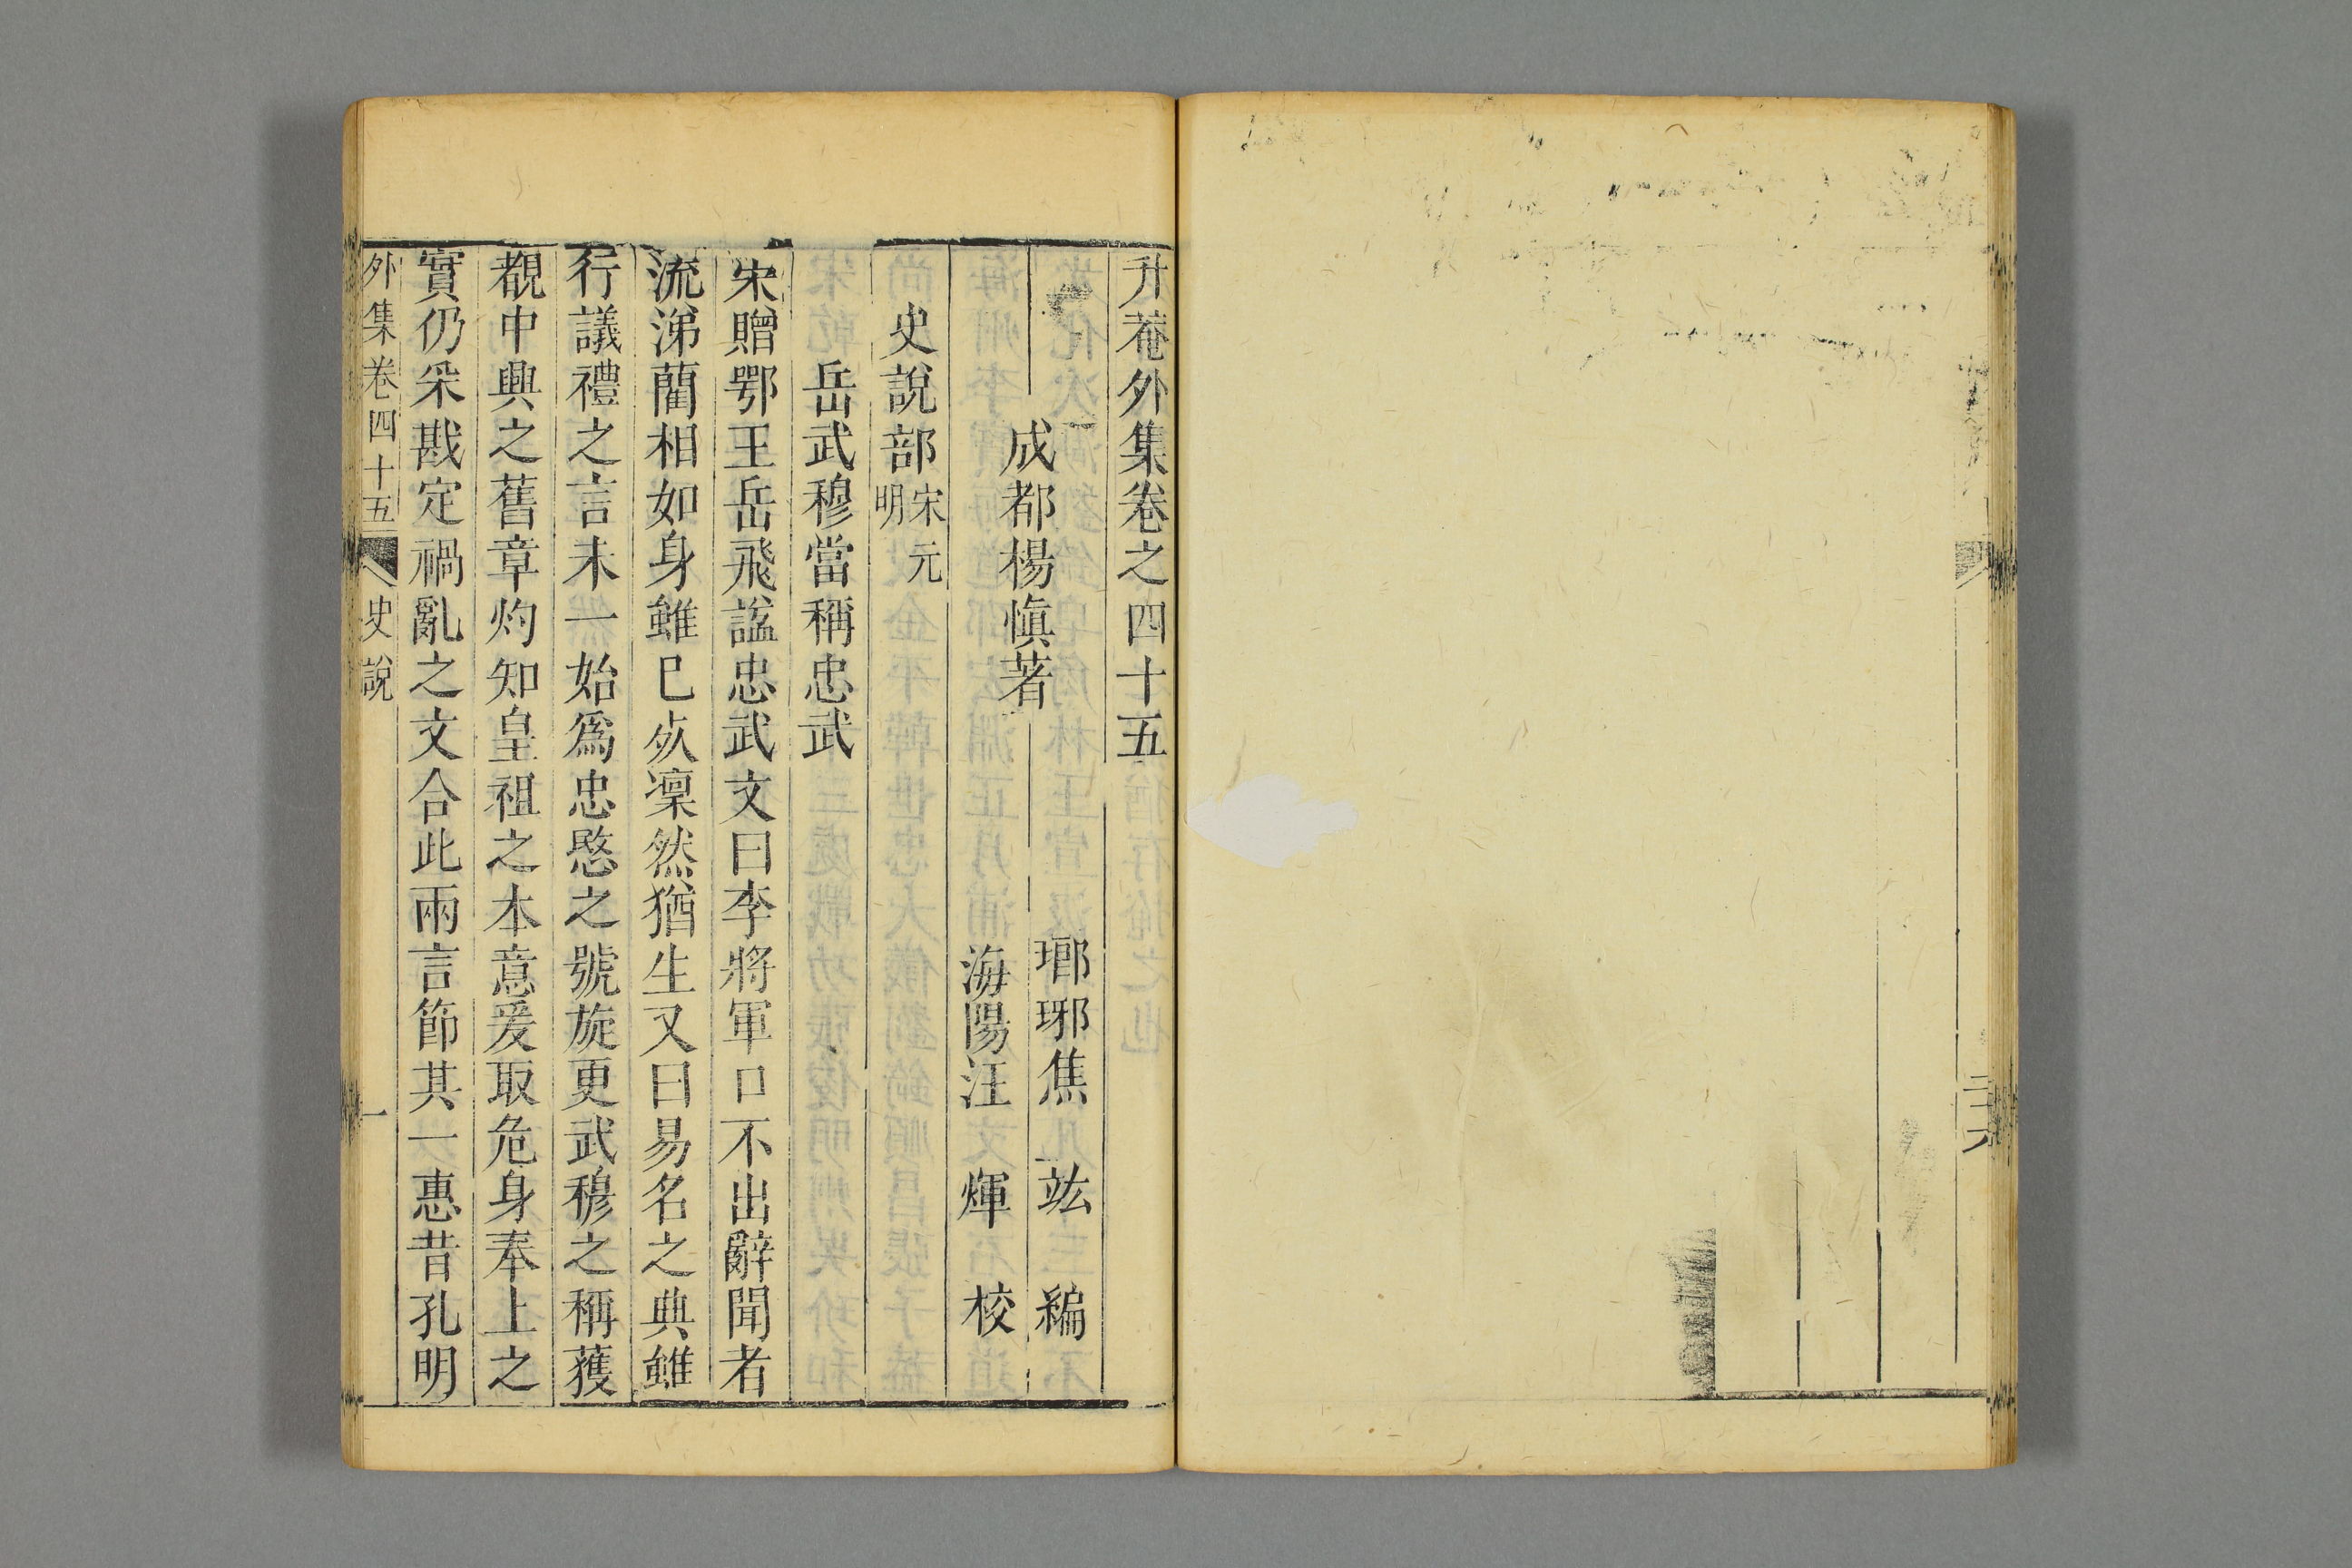 三十六
升菴外集卷之四十五
成都楊慎著
瑯琊焦竑編
海陽汪煇校
史說部宋元明
岳武穆當稱忠武
宋贈鄂王岳飛諡忠武文曰李將軍口不出辭聞者
流涕藺相如身雖巳死凛然猶生又曰易名之典雖
行議禮之言未一始爲忠愍之號旋更武穆之稱獲
覩中興之舊章灼知皇祖之本意爰取危身奉上之
實仍采戡定禍亂之文合此兩言節其一惠昔孔明
外集卷四十五 史說 一